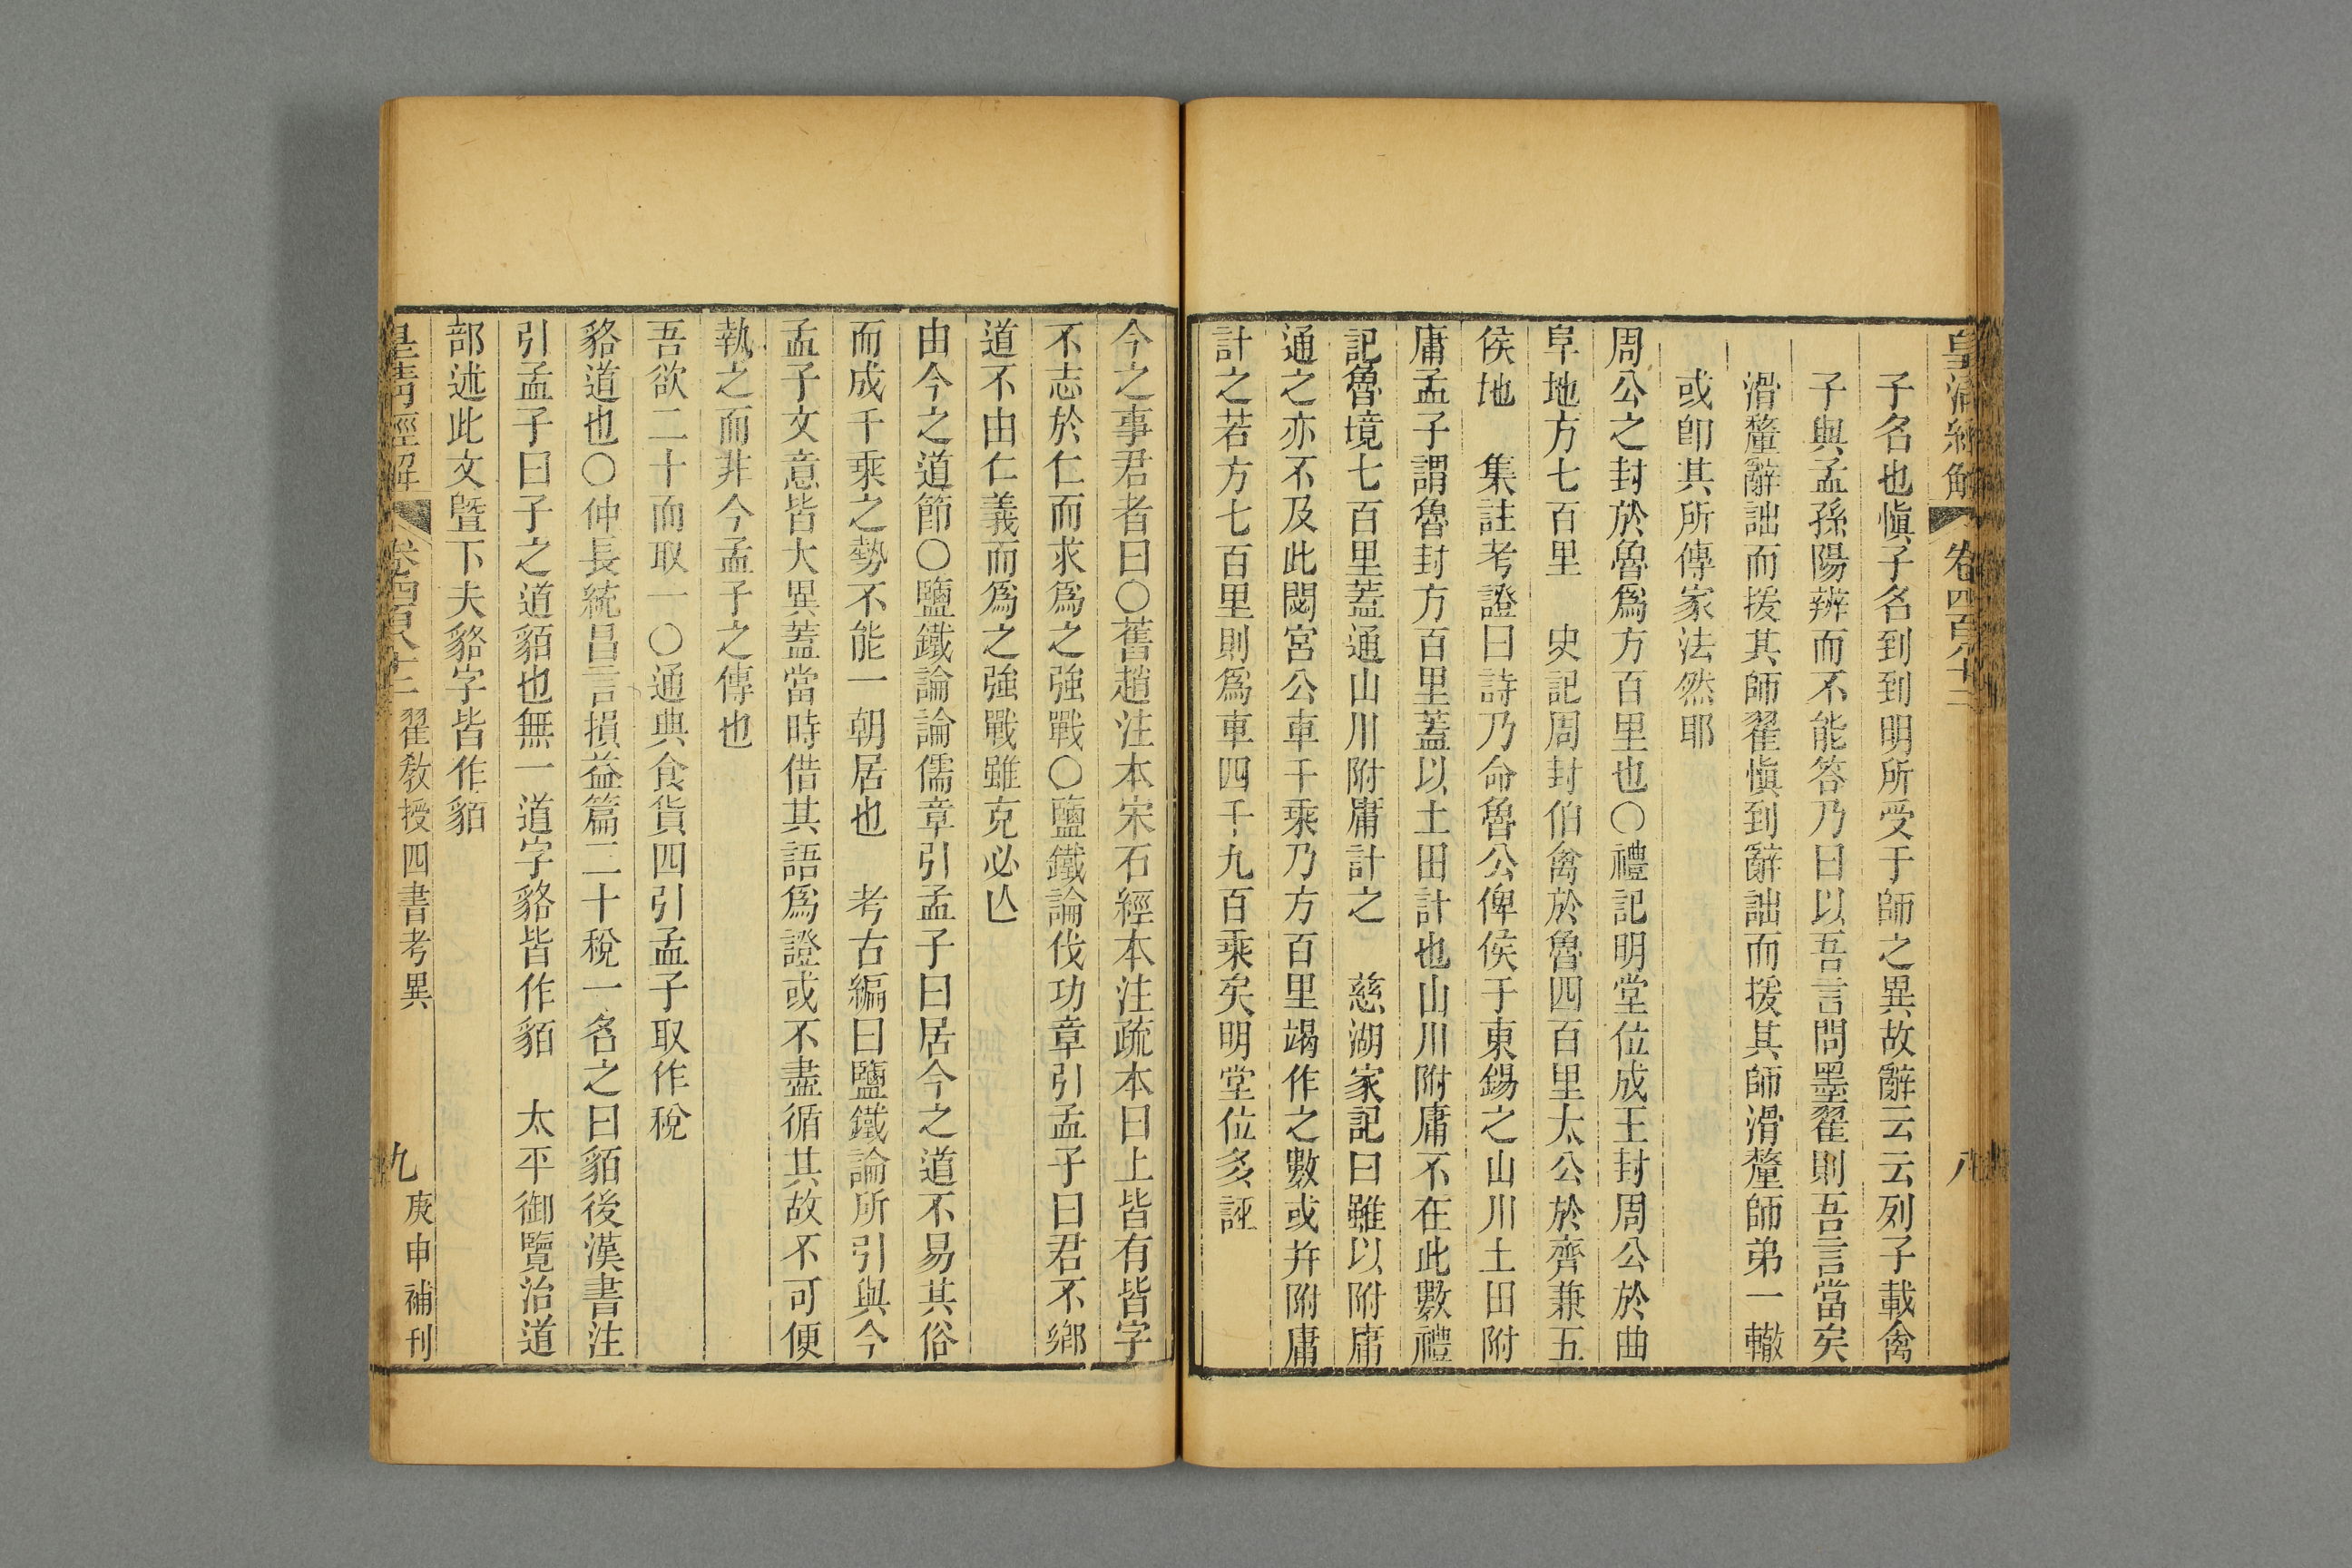 皇清經解 卷四百八十三 八
子名也愼子名到到明所受于師之異故辭云云列子載禽
子與孟孫陽辨而不能答乃曰以吾言問墨翟則吾言當矣
滑釐辭詘而援其師翟愼到辭詘而援其師滑釐師弟一轍
或卽其所傳家法然耶
周公之封於魯爲方百里也○禮記明堂位成王封周公於曲
阜地方七百里 史記周封伯禽於魯四百里太公於齊兼五
侯地 集註考證曰詩乃命魯公俾侯于東錫之山川土田附
庸孟子謂魯封方百里蓋以土田計也山川附庸不在此數禮
記魯境七百里蓋通山川附庸計之 慈湖家記曰雖以附庸
通之亦不及此閟宮公車千乘乃方百里竭作之數或并附庸
計之若方七百里則爲車四千九百乘矣明堂位多誣
今之事君者曰○舊趙注本宋石經本注疏本曰上皆有皆字
不志於仁而求爲之強戰○鹽鐵論伐功章引孟子曰君不鄉
道不由仁義而爲之強戰雖克必亾
由今之道節○鹽鐵論論儒章引孟子曰居今之道不易其俗
而成千乘之勢不能一朝居也 考古編曰鹽鐵論所引與今
孟子文意皆大異蓋當時借其語爲證或不盡循其故不可便
執之而非今孟子之傳也
吾欲二十而取一○通典食貨四引孟子取作稅
貉道也○仲長統昌言損益篇二十稅一名之曰貊後漢書注
引孟子曰子之道貊也無一道字貉皆作貊 太平御覽治道
部述此文曁下夫貉字皆作貊
皇清經解 卷四百八十三 翟敎授四書考異 九 庚申補刊